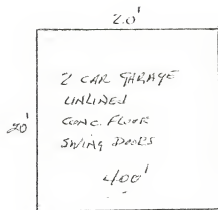 20'
20'
2 CAR GARAGE
UNLINED
CONC. FLOOR
SWING DOORS
400'